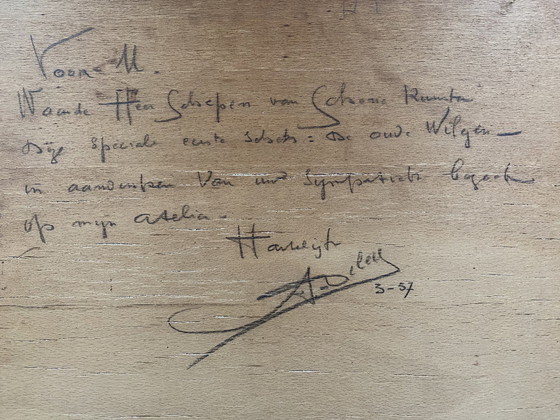 Voor M.
Waarde Heer Schepen van Schone Kunsten
Dize speciale eerste schets: De oude Wilgen —
in aandenken Van uwe Sympatieke
op mijn atelier.
Hartelijk
A. Dilen
3-57